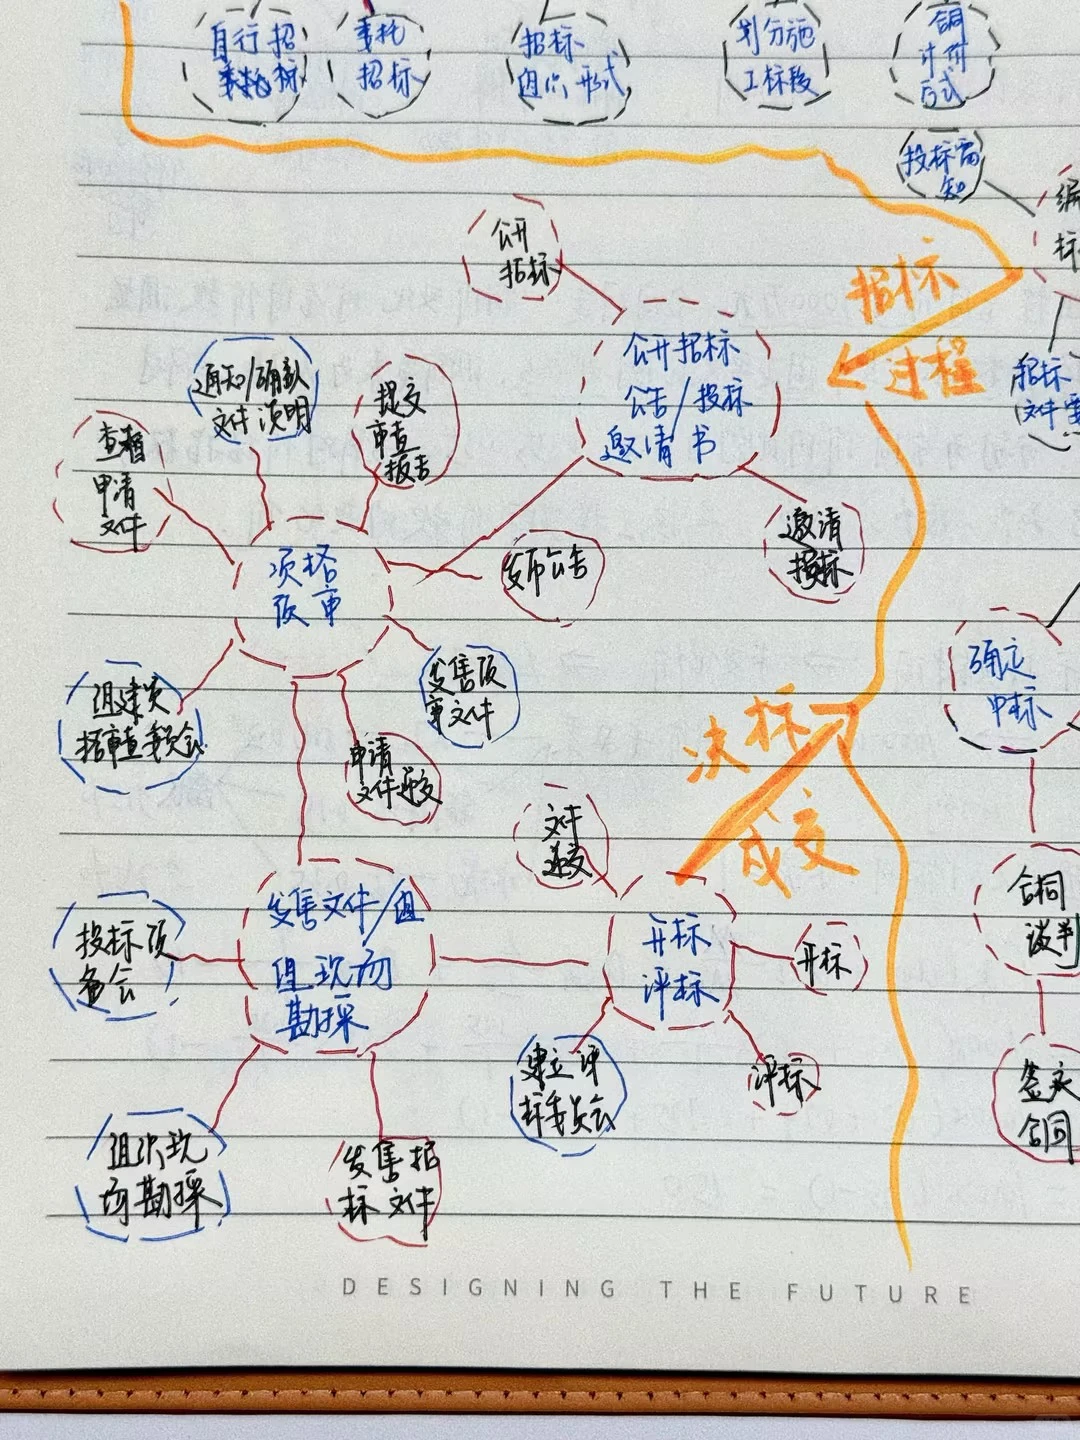 自行招
标
委托
招标
招标
组织形式
划分施
工标段
合同
计价
方式
投标需
知
编
标
公开
招标
招标
过程
招标
文件
公开招标
公告/投标
邀请书
通知/确认
文件说明
提交
审查
报告
申请
文件
邀请
投标
发布公告
资格
预审
确定
中标
组建资
格审查委员会
发售预
审文件
申请
文件递交
决标
成交
文件
递交
合同
谈判
发售文件/组
组现场
勘探
投标预
备会
开标
评标
开标
建立评
标委员会
评标
签定
合同
组织现
场勘探
发售招
标文件
DESIGNING THE FUTURE